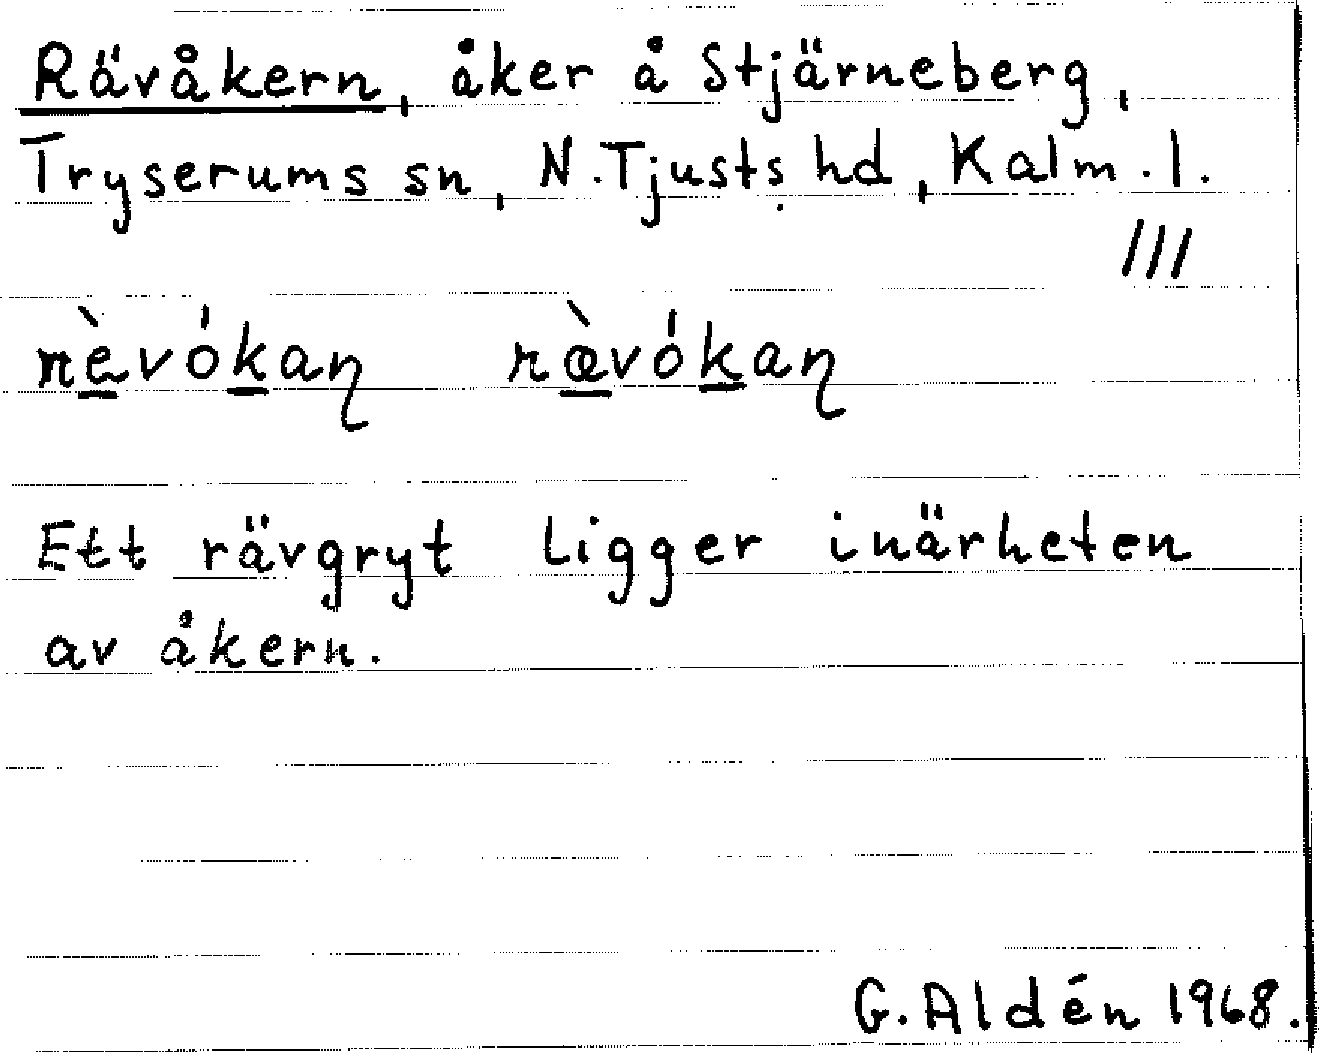 Rävåkern, åker å Stjärneberg,
Tryserums sn, N. Tjusts hd, Kalm. l.
III
rèvókaɳ ræ̀vókaɳ
Ett rävgryt ligger i närheten
av åkern.
G. Aldén 1968.